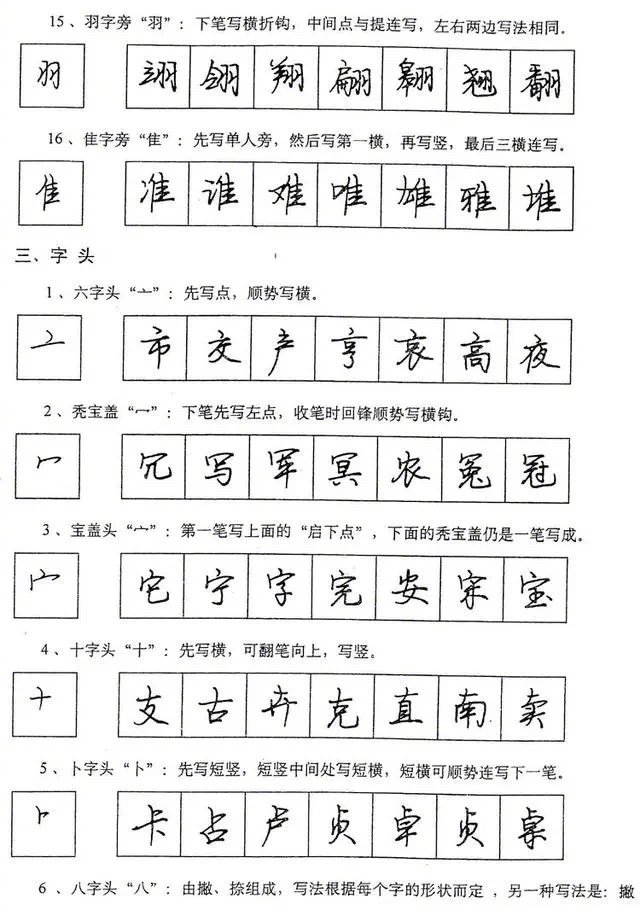 15、羽字旁“羽”：下笔写横折钩，中间点与提连写，左右两边写法相同。
羽 翊 翎 翔 翩 翱 翘 翻
16、隹字旁“隹”：先写单人旁，然后写第一横，再写竖，最后三横连写。
隹 准 谁 难 唯 雄 雅 堆
三、字头
1、六字头“亠”：先写点，顺势写横。
亠 市 交 产 亨 哀 高 夜
2、秃宝盖“冖”：下笔先写左点，收笔时回锋顺势写横钩。
冖 冗 写 军 冥 农 冤 冠
3、宝盖头“宀”：第一笔写上面的“启下点”，下面的秃宝盖仍是一笔写成。
宀 它 宁 字 完 安 宋 宝
4、十字头“十”：先写横，可翻笔向上，写竖。
十 支 古 卉 克 直 南 卖
5、卜字头“⺊”：先写短竖，短竖中间处写短横，短横可顺势连写下一笔。
⺊ 卡 占 卢 贞 卓 贞 桌
6、八字头“八”：由撇、捺组成，写法根据每个字的形状而定，另一种写法是：撇